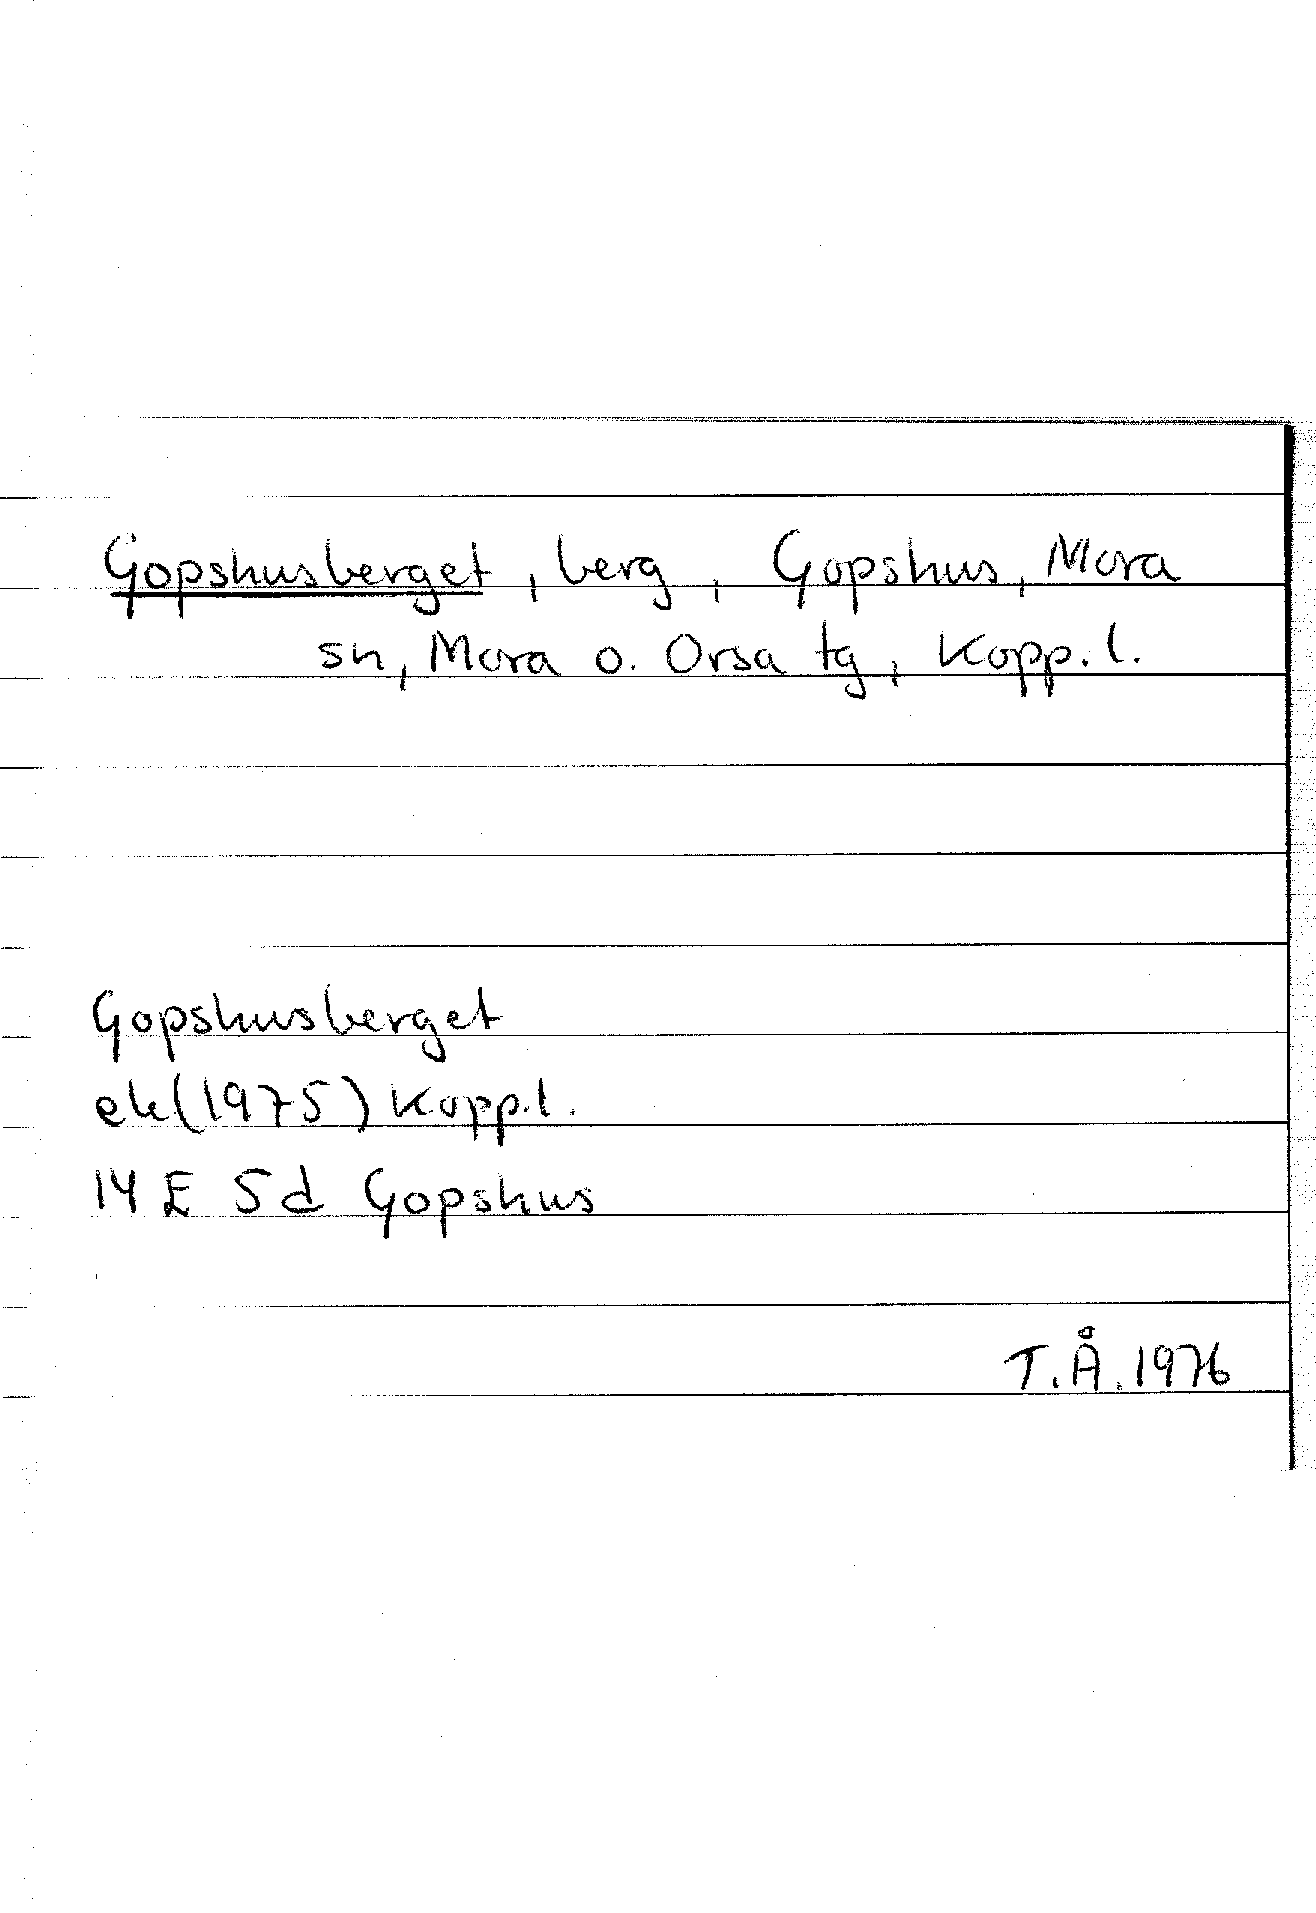 Gopshusberget, berg, Gopshus, Mora
sn, Mora o. Orsa tg, Kopp. l.
Gopshusberget
ek (1975) Kopp. l.
14 E 5 d Gopshus
T.Å. 1976